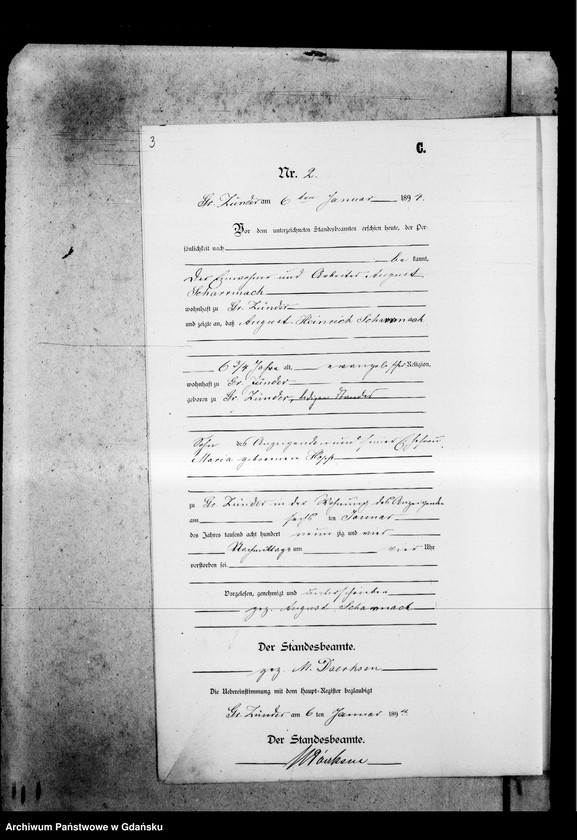 3
C.
Nr. 2.
Gr. Zünder am 6 ten Januar 1894.
Vor dem unterzeichneten Standesbeamten erschien heute, der Per-
sönlichkeit nach
be kannt,
der Einwohner und Arbeiter August
Scharrmach
wohnhaft zu Gr. Zünder
und zeigte an, daß August Heinrich Scharrmach
6 3/4 Jahre alt, evangelischer Religion,
wohnhaft zu Gr. Zünder
geboren zu Gr. Zünder, ledigen Standes
Sohn des Anzeigenden und seiner Ehefrau
Maria geborenen Hopp
zu Gr. Zünder in der Wohnung des Anzeigenden
am sechs ten Januar
des Jahres tausend acht hundert neun zig und vier
Nachmittags um vier Uhr
verstorben sei.
Vorgelesen, genehmigt und unterschrieben
gez. August Scharmach
Der Standesbeamte.
gez. M. Doerksen
Die Uebereinstimmung mit dem Haupt-Register beglaubigt
Gr. Zünder am 6 ten Januar 1894.
Der Standesbeamte.
MDoerksen
Archiwum Państwowe w Gdańsku